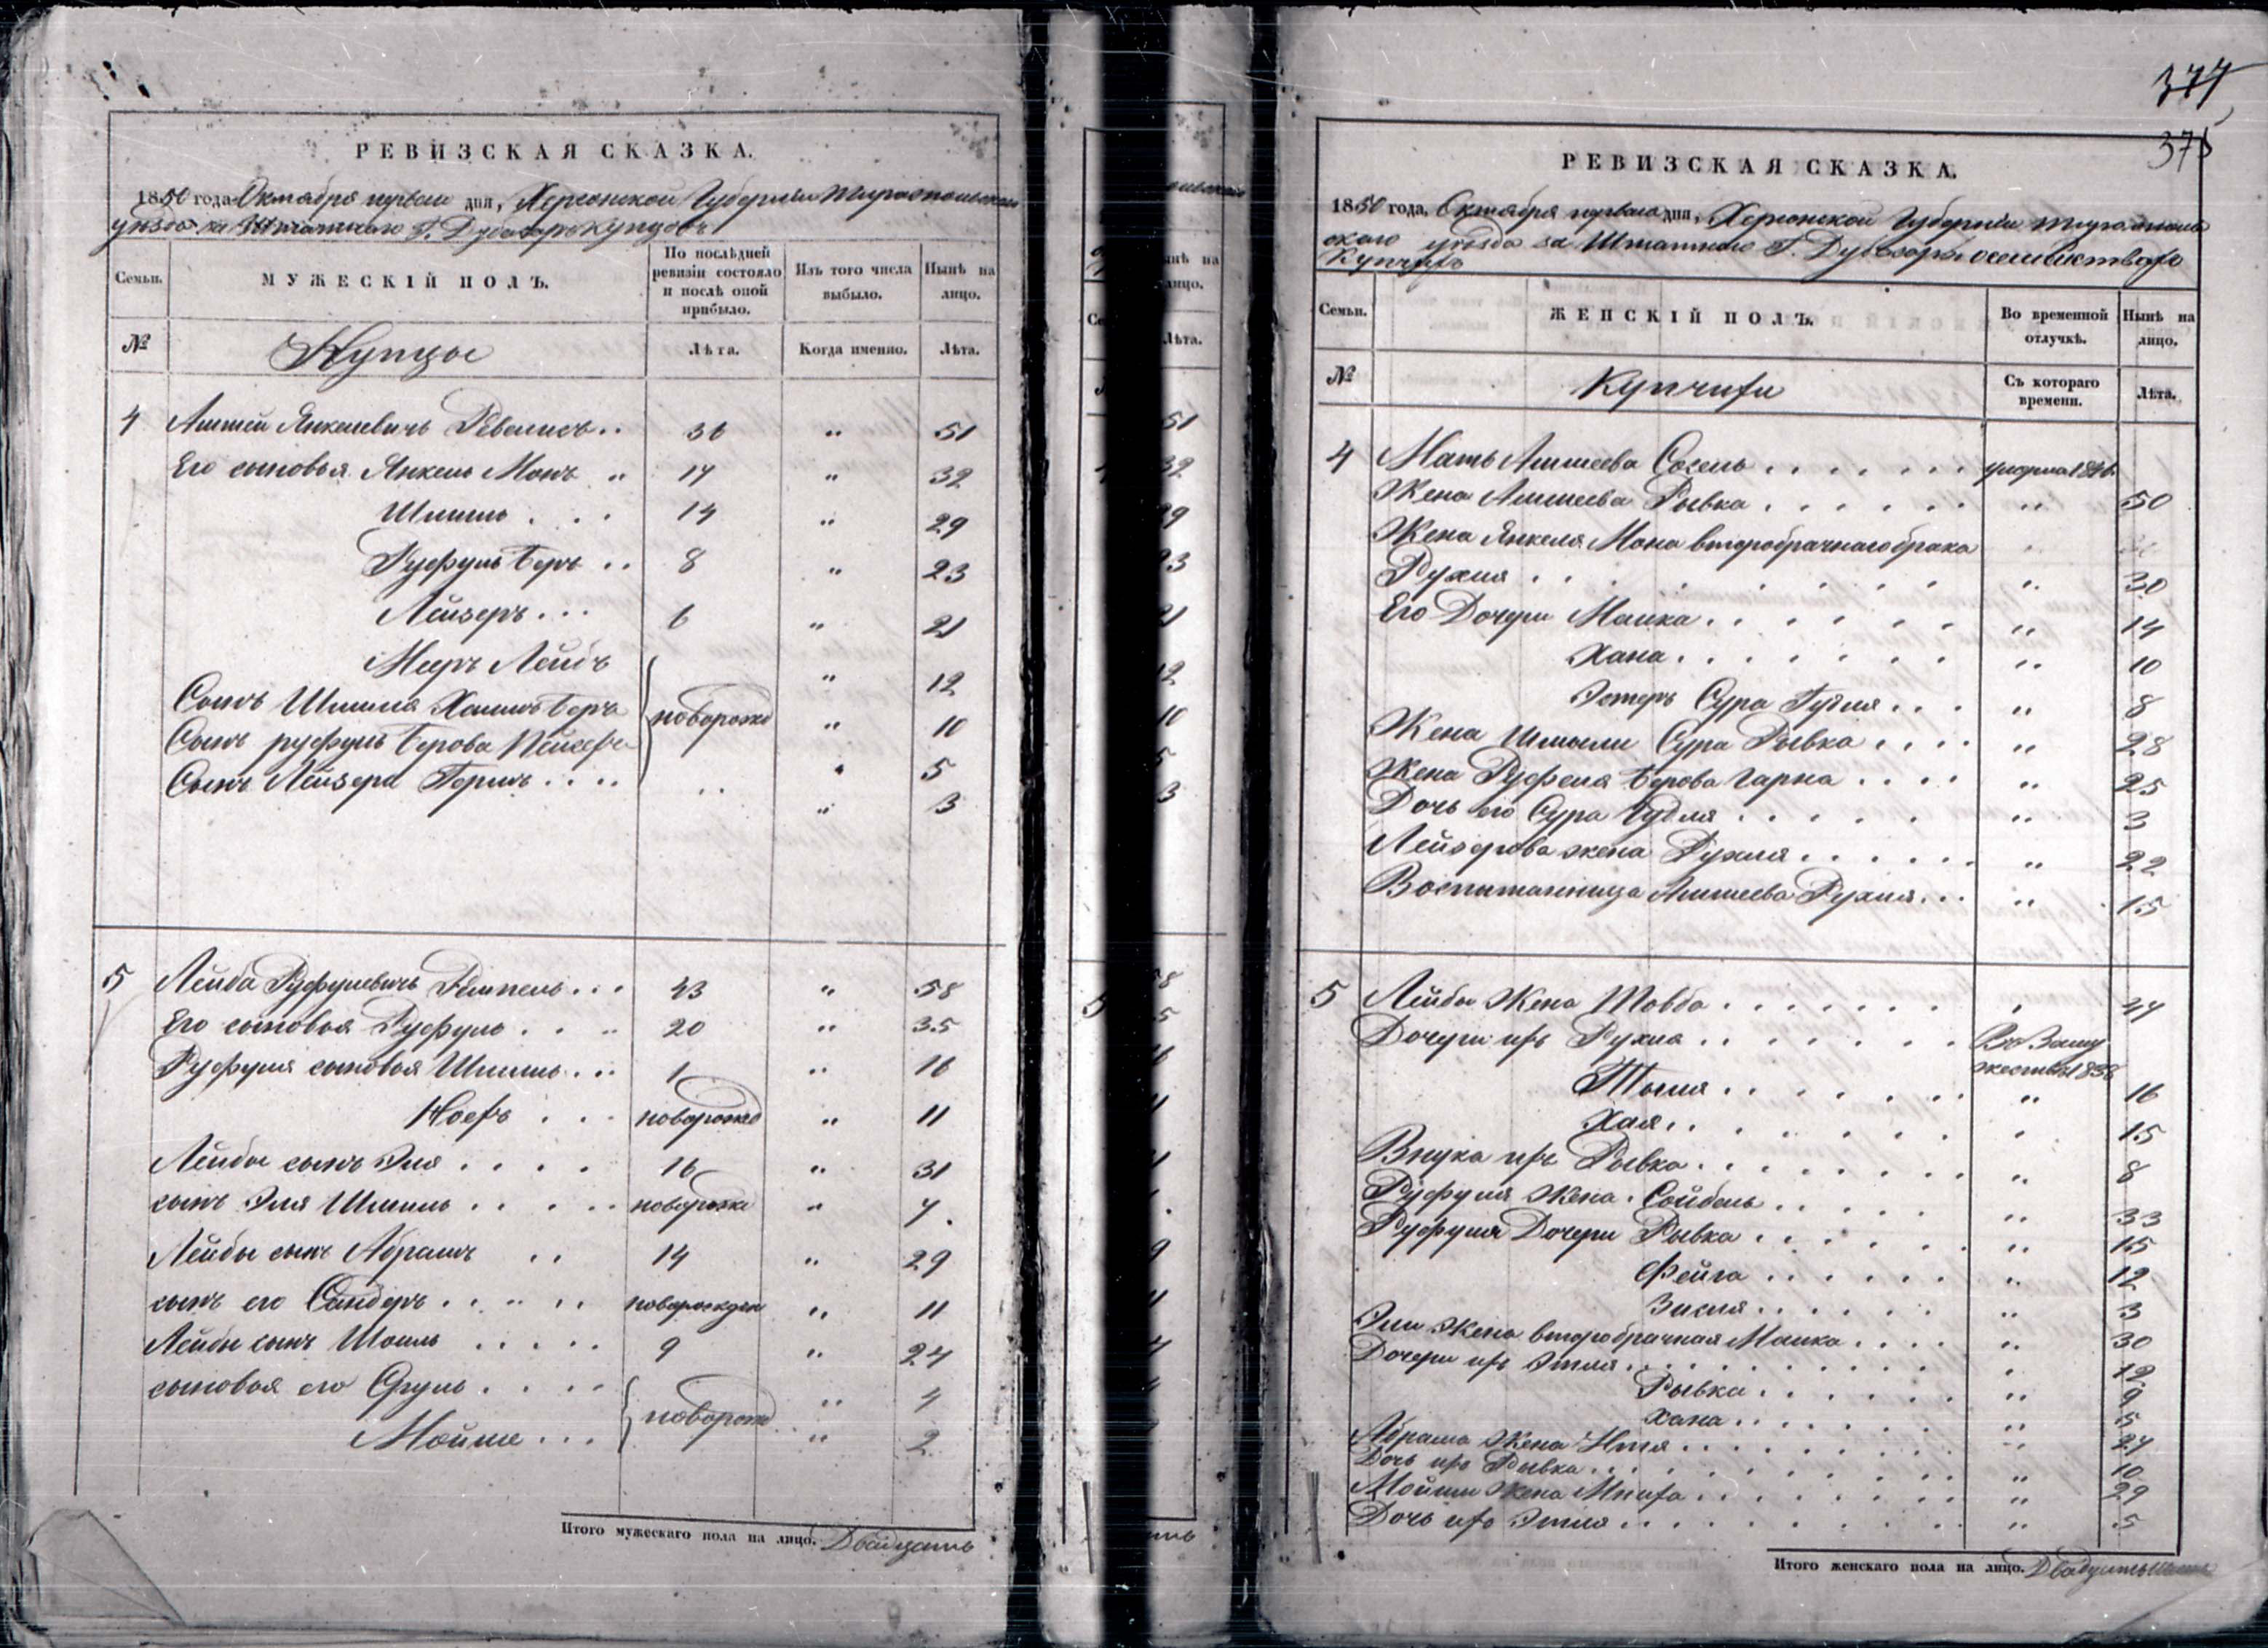 РЕВИЗСКАЯ СКАЗКА.
1850 года Октября перваго дня, Херсонской Губерніи Тираспольскаго
уѣзда за Штатнаго Г. Дубосаръ купцовъ
Семьи. МУЖЕСКІЙ ПОЛЪ. По послѣдней ревизіи состояло и послѣ оной прибыло. Изъ того числа выбыло. Нынѣ на лицо.
№ Купцы Лѣта. Когда именно. Лѣта.
4 Аншей Янкелевичъ 36 " 51
Его сыновья Янкель Монъ " 17 " 32
Шмиль . . . 14 " 29
Руфуль Беръ . . 8 " 23
Лейзеръ . . . 6 " 21
Мееръ Лейбъ " 12
Сынъ Шмиля Хаимъ Беръ новорожд " 10
Сынъ руфуль Берова " 5
Сынъ Лейзера . . . . " 3
5 Лейба Руфулевичъ . . . 43 " 58
Его сыновья Руфуль . . . 20 " 35
Руфуля сыновья Шмиль . . . 1 " 16
. . . новорожд " 11
Лейбы сынъ Эля . . . . 16 " 31
сынъ Эля Шмиль . . . . . новорожд " 7.
Лейбы сынъ Абрамъ . . 14 " 29
сынъ его Сандеръ . . . . . новорожден " 11
Лейбы сынъ Шоиль . . . . . 9 " 24
сыновья его Сруль . . . . новорожд " 4
Мойше . . . " 2
Итого мужескаго пола на лицо. Двадцать
377
375
РЕВИЗСКАЯ СКАЗКА.
1850 года, Октября перваго дня, Херсонской Губерніи Тирасполь
скаго уѣзда за Штатнаго Г. Дубосаръ
Купчихъ
Семьи. ЖЕНСКІЙ ПОЛЪ. Во временной отлучкѣ. Нынѣ на лицо.
№ Купчихи Съ котораго времени. Лѣта.
4 Мать Аншеева Сосель . . . . . . . умерла 1846.
Жена Аншеева Рывка . . . . . . " 50
Жена Янкеля Мона второбрачнаго брака
Рухля . . . . . . . . . " 30
Его Дочери Малка . . . . . . " 14
Хана . . . . . . . " 10
Эстеръ Сура Гудля . . . " 8
Жена Шмили Сура Рывка . . . . " 28
Жена Руфеля Берова . . . . " 25
Дочь его Сура Гудля . . . . . " 3
Лейзерова жена Рухля . . . . . . " 22
Воспитанница Аншеева Рухля . . . " 15
5 Лейбы Жена Товба . . . . . . . " 47
Дочери ихъ Рухля . . . . . . . Во Заму
жествѣ 1838
. . . . . . . " 16
Хая . . . . . . . " 15
Внука ихъ Рывка . . . . . . . . " 8
Руфуля Жена Сойбель . . . . . " 33
Руфуля Дочери Рывка . . . . . . " 15
Фейга . . . . . . " 12
Зисля . . . . . . " 3
Эли Жена второбрачная Малка . . . . " 30
Дочери ихъ Этля . . . . . . . . . " 12
Рывка . . . . . . " 9
Хана . . . . . . " 5
Абрама Жена . . . . . . . . " 27
Дочь ихъ Рывка . . . . . . . . . " 10
Мойши Жена . . . . . . . . " 29
Дочь ихъ Этля . . . . . . . . . . " 5
Итого женскаго пола на лицо. Двадцать